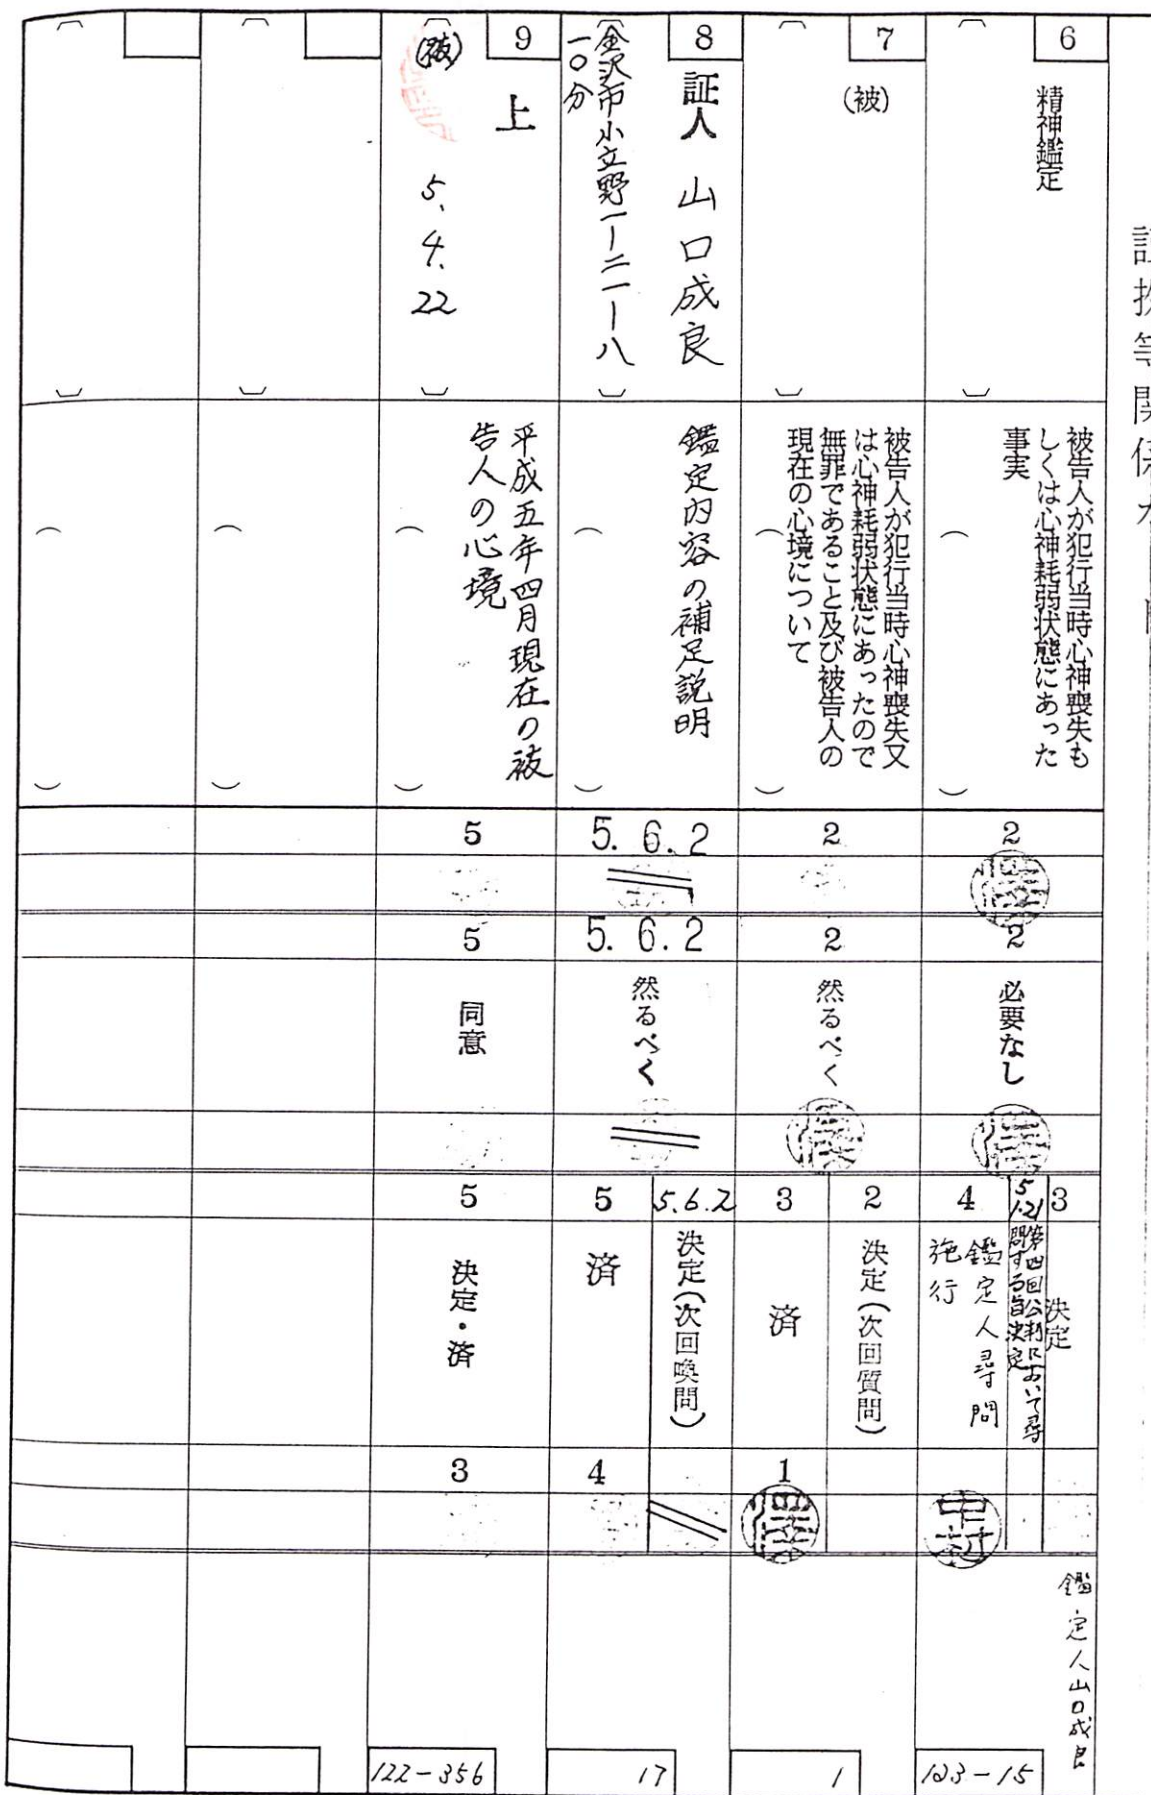 証拠等関係カード
6
精神鑑定
被告人が犯行当時心神喪失も
しくは心神耗弱状態にあった
事実
2
2
必要なし
3
決定
5
1.21
第四回公判において尋
問する旨決定
4
鑑定人尋問
施行
中村
鑑定人山口成良
123-15
7
(被)
被告人が犯行当時心神喪失又
は心神耗弱状態にあったので
無罪であること及び被告人の
現在の心境について
2
2
然るべく
2
決定(次回質問)
3
済
1
1
8
証人 山口成良
金沢市小立野一ー二一ー八
一〇分
鑑定内容の補足説明
5.6.2
5.6.2
然るべく
5.6.2
決定(次回喚問)
5
済
4
17
9
上
(被)
5.4.22
平成五年四月現在の被
告人の心境
5
5
同意
5
決定・済
3
122-356